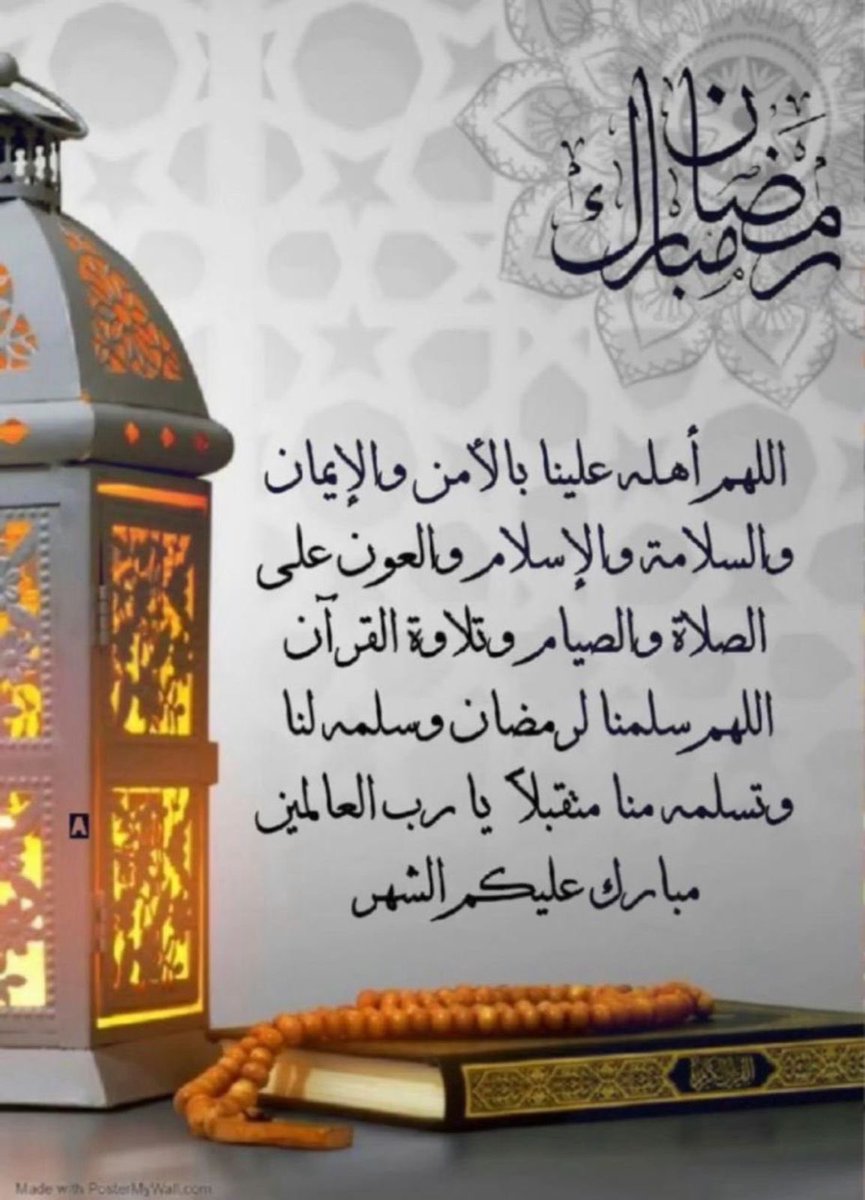 رمضان مبارك
اللهم أهله علينا بالأمن والإيمان
والسلامة والإسلام والعون على
الصلاة والصيام وتلاوة القرآن
اللهم سلمنا لرمضان وسلمه لنا
وتسلمه منا متقبلاً يا رب العالمين
مبارك عليكم الشهر
A
القرآن الكريم
Made with PosterMyWall.com